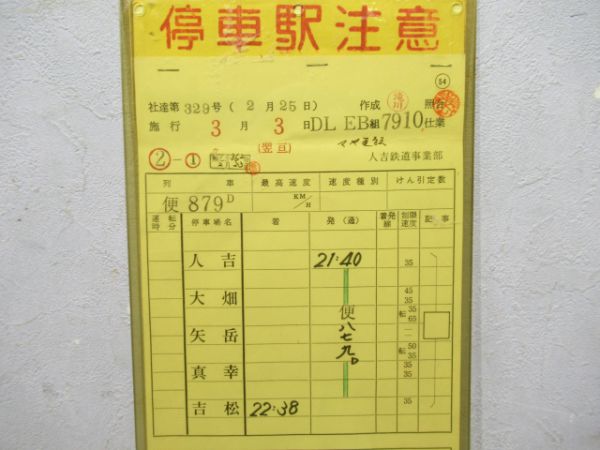 停車駅注意
54
社達第 329号 ( 2 月 25 日 ) 作成 照合
施行 3 月 3 日 DL EB組 7910 仕業
(翌亘)
②-① 人吉鉄道事業部
列車 最高速度 速度種別 けん引定数
便 879D KM/H
運転時分 停車場名 着 発(通) 着発線 制限速度 記事
人吉 21:40 35
大畑 45 35
便八七九D 35 転65
矢岳 —
転50 35
真幸 35
吉松 22:38 35